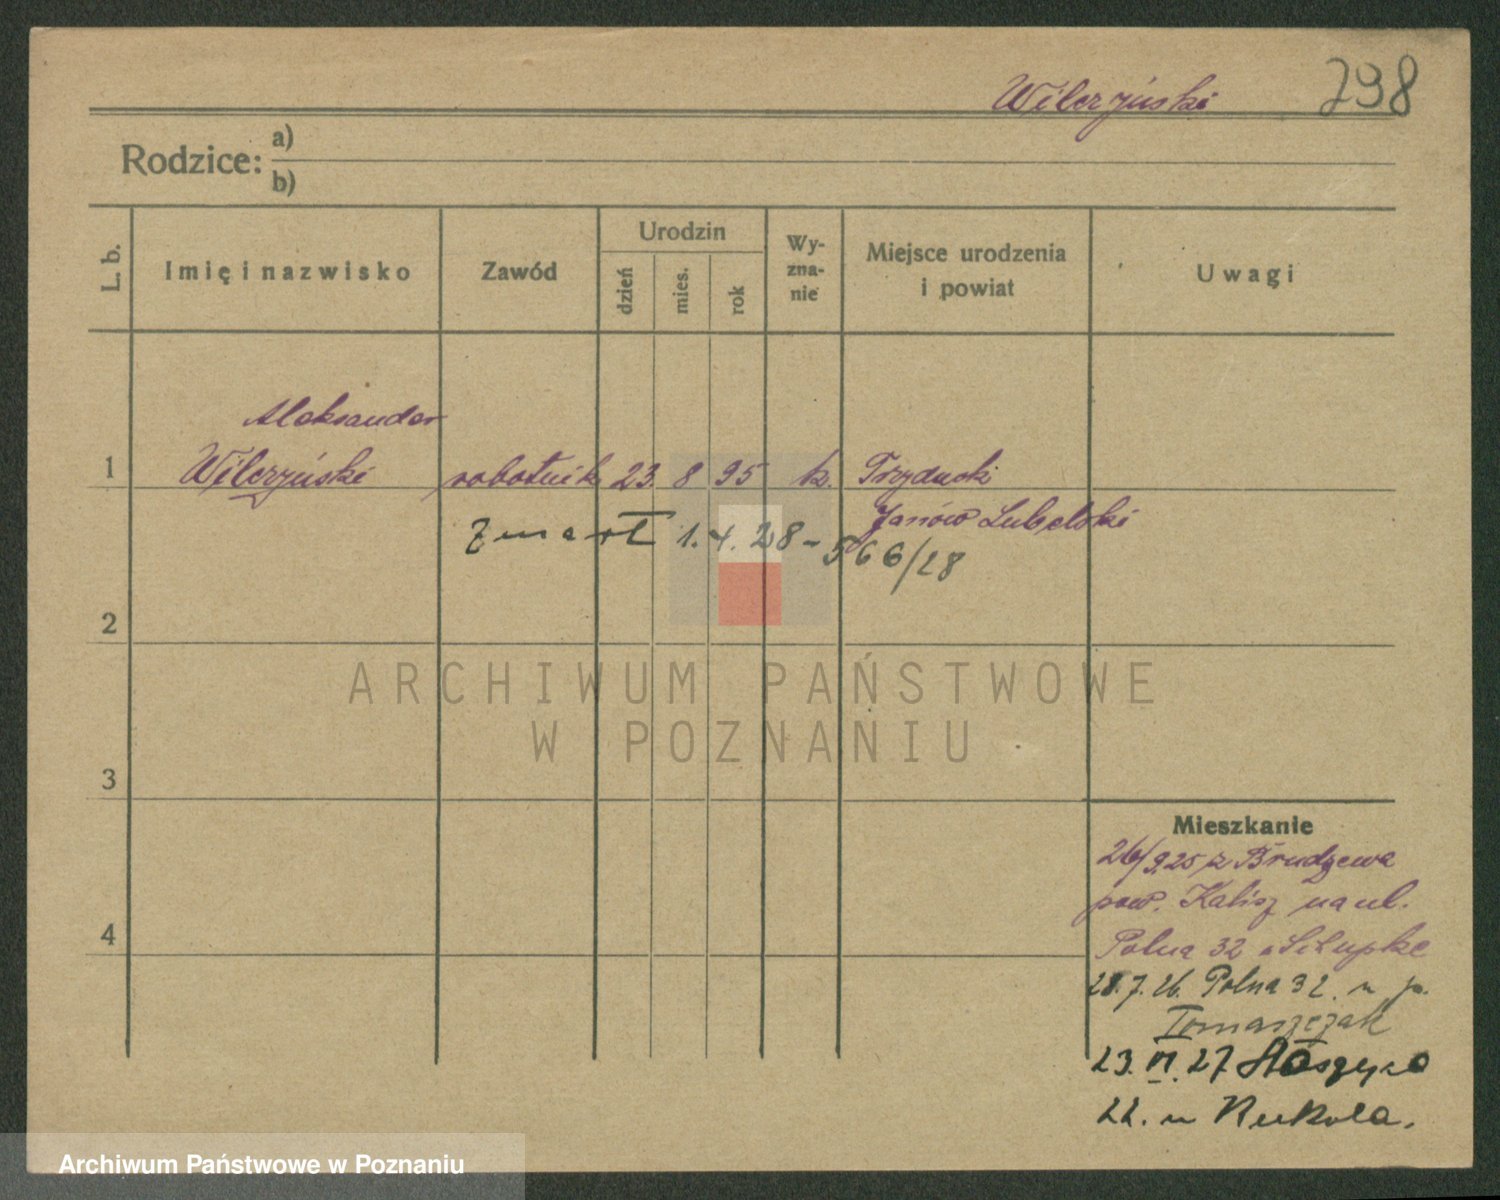 Wilczyński 798
Rodzice: a)
b)
L. b. Imię i nazwisko Zawód Urodzin dzień mies. rok Wy-zna-nie Miejsce urodzenia i powiat Uwagi
Aleksander
1 Wilczyński robotnik 23. 8 95 k. Trydnski
Janów Lubelski
Zmarł 1. 4. 28 - 566/28
2
ARCHIWUM PAŃSTWOWE
W POZNANIU
3
Mieszkanie
26/9.25 z Brudzewa
pow. Kalisz na ul.
4
Polna 32
28.7.26. Polna 32. u p.
Tomaszczak
23. VI. 27
22. u Kukola.
Archiwum Państwowe w Poznaniu